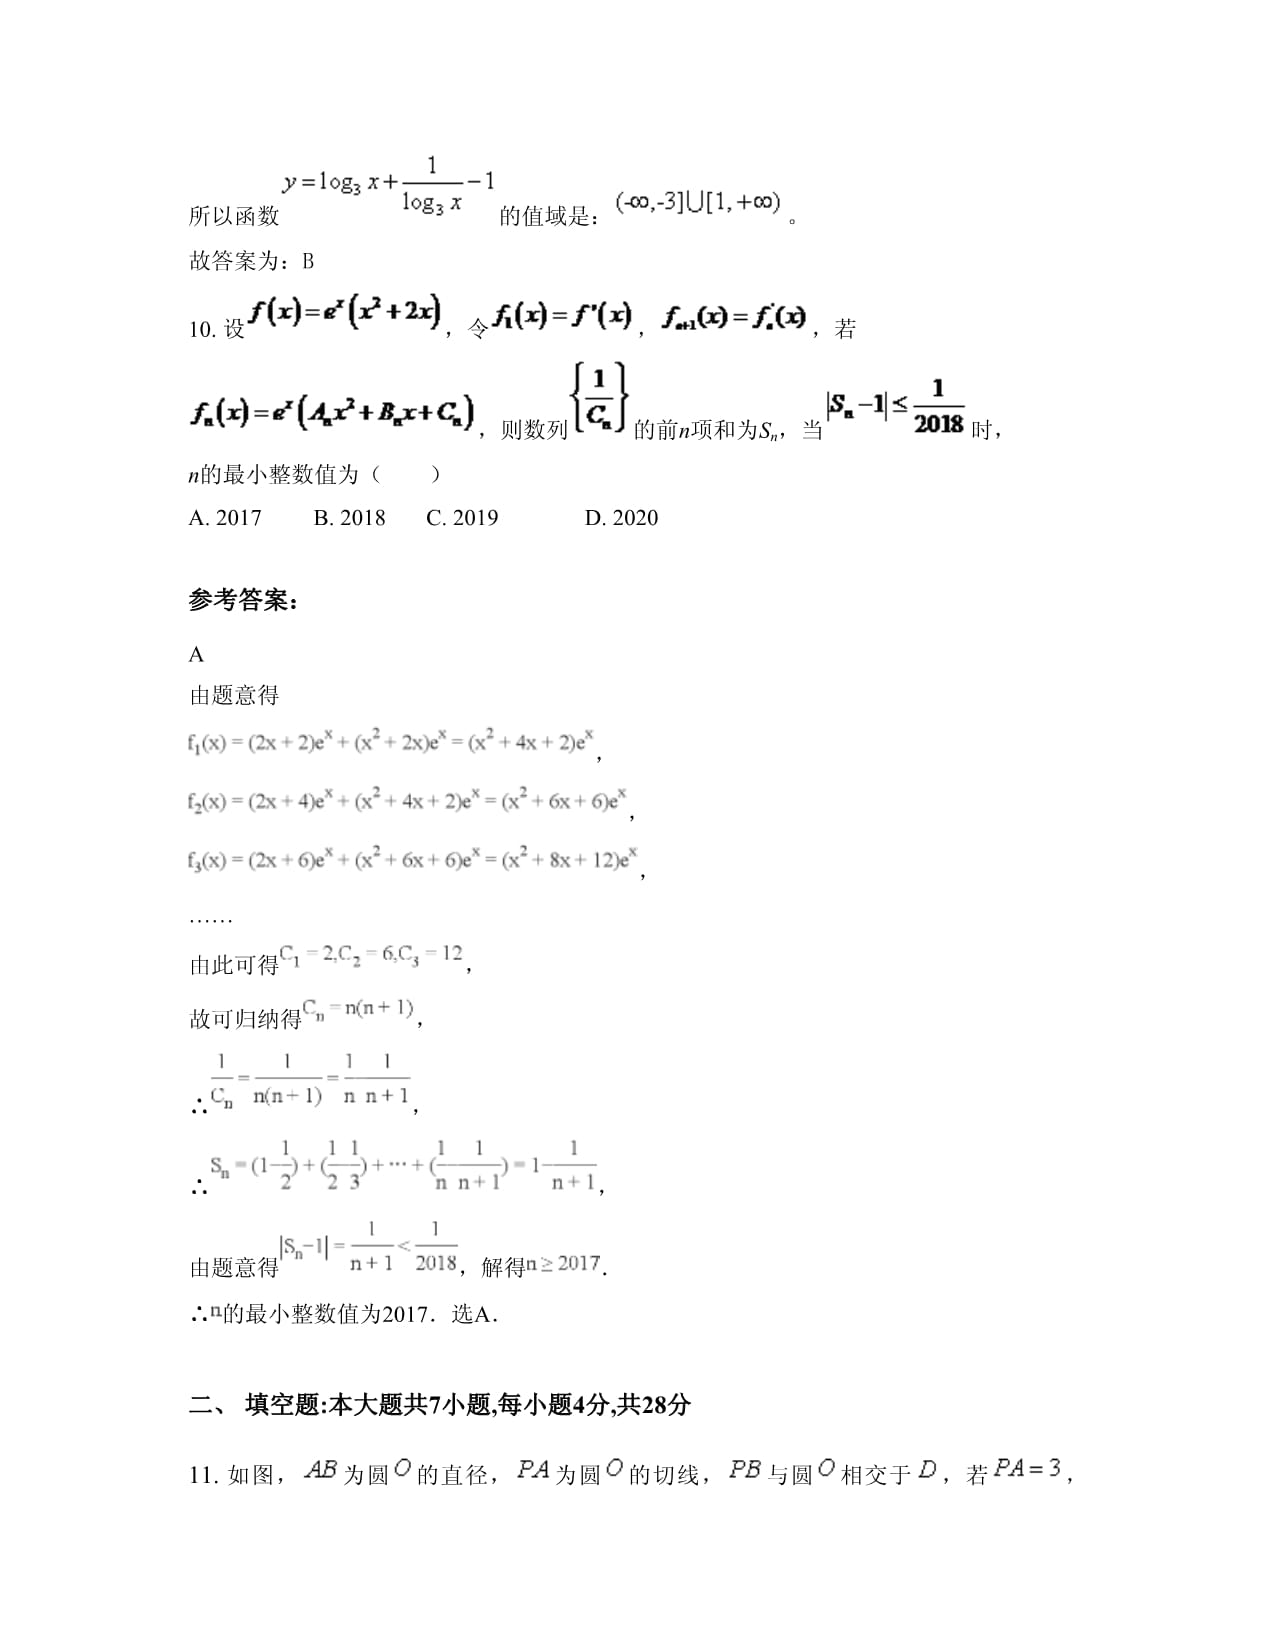 所以函数 y=log₃x+1/(log₃x)−1 的值域是：(-∞,-3]∪[1,+∞)。
故答案为：B
10. 设f(x)=eˣ(x²+2x)，令f₁(x)=f'(x)，fₙ₊₁(x)=fₙ'(x)，若
fₙ(x)=eˣ(Aₙx²+Bₙx+Cₙ)，则数列{1/Cₙ}的前n项和为Sₙ，当|Sₙ−1|≤1/2018时，
n的最小整数值为（　　）
A. 2017　B. 2018　C. 2019　D. 2020
参考答案：
A
由题意得
f₁(x)=(2x+2)eˣ+(x²+2x)eˣ=(x²+4x+2)eˣ，
f₂(x)=(2x+4)eˣ+(x²+4x+2)eˣ=(x²+6x+6)eˣ，
f₃(x)=(2x+6)eˣ+(x²+6x+6)eˣ=(x²+8x+12)eˣ，
……
由此可得C₁=2,C₂=6,C₃=12，
故可归纳得Cₙ=n(n+1)，
∴1/Cₙ=1/(n(n+1))=1/n 1/(n+1)，
∴Sₙ=(1-1/2)+(1/2 1/3)+⋯+(1/n 1/(n+1))=1-1/(n+1)，
由题意得|Sₙ−1|=1/(n+1)<1/2018，解得n≥2017．
∴n的最小整数值为2017．选A．
二、 填空题:本大题共7小题,每小题4分,共28分
11. 如图，AB为圆O的直径，PA为圆O的切线，PB与圆O相交于D，若PA=3，